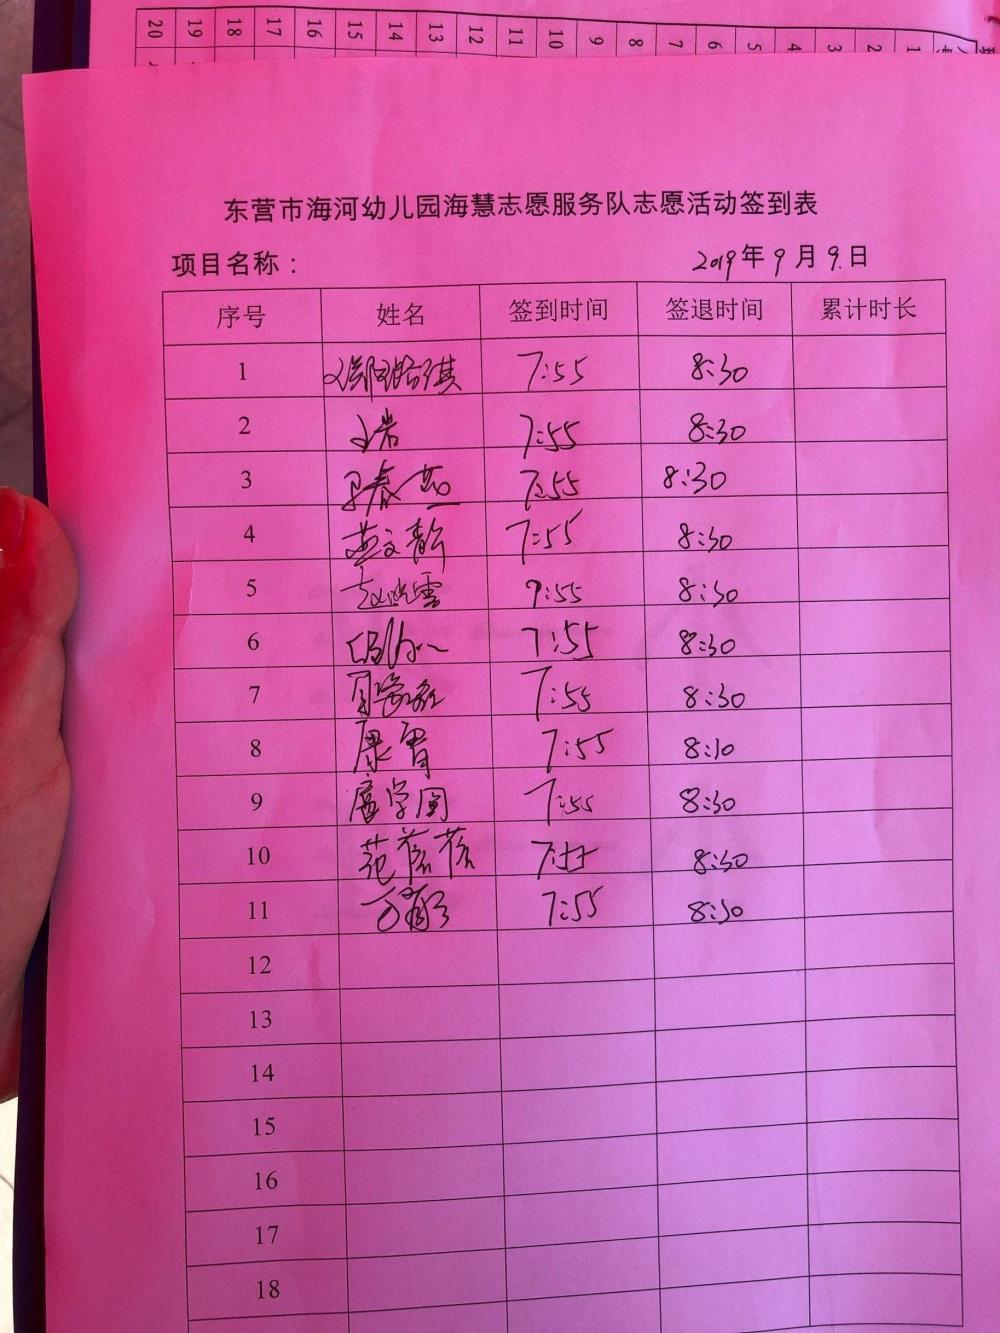 20 19 18 17 16 15 14 13 12 11 10 9 8 7 6 5 4 3 2 1
东营市海河幼儿园海慧志愿服务队志愿活动签到表
项目名称： 2019年9月9日
序号 姓名 签到时间 签退时间 累计时长
1 7:55 8:30
2 7:55 8:30
3 7:55 8:30
4 7:55 8:30
5 赵晓雪 9:55 8:30
6 7:55 8:30
7 7:55 8:30
8 康胃 7:55 8:30
9 7:55 8:30
10 范蓓蓓 7:55 8:30
11 7:55 8:30
12
13
14
15
16
17
18